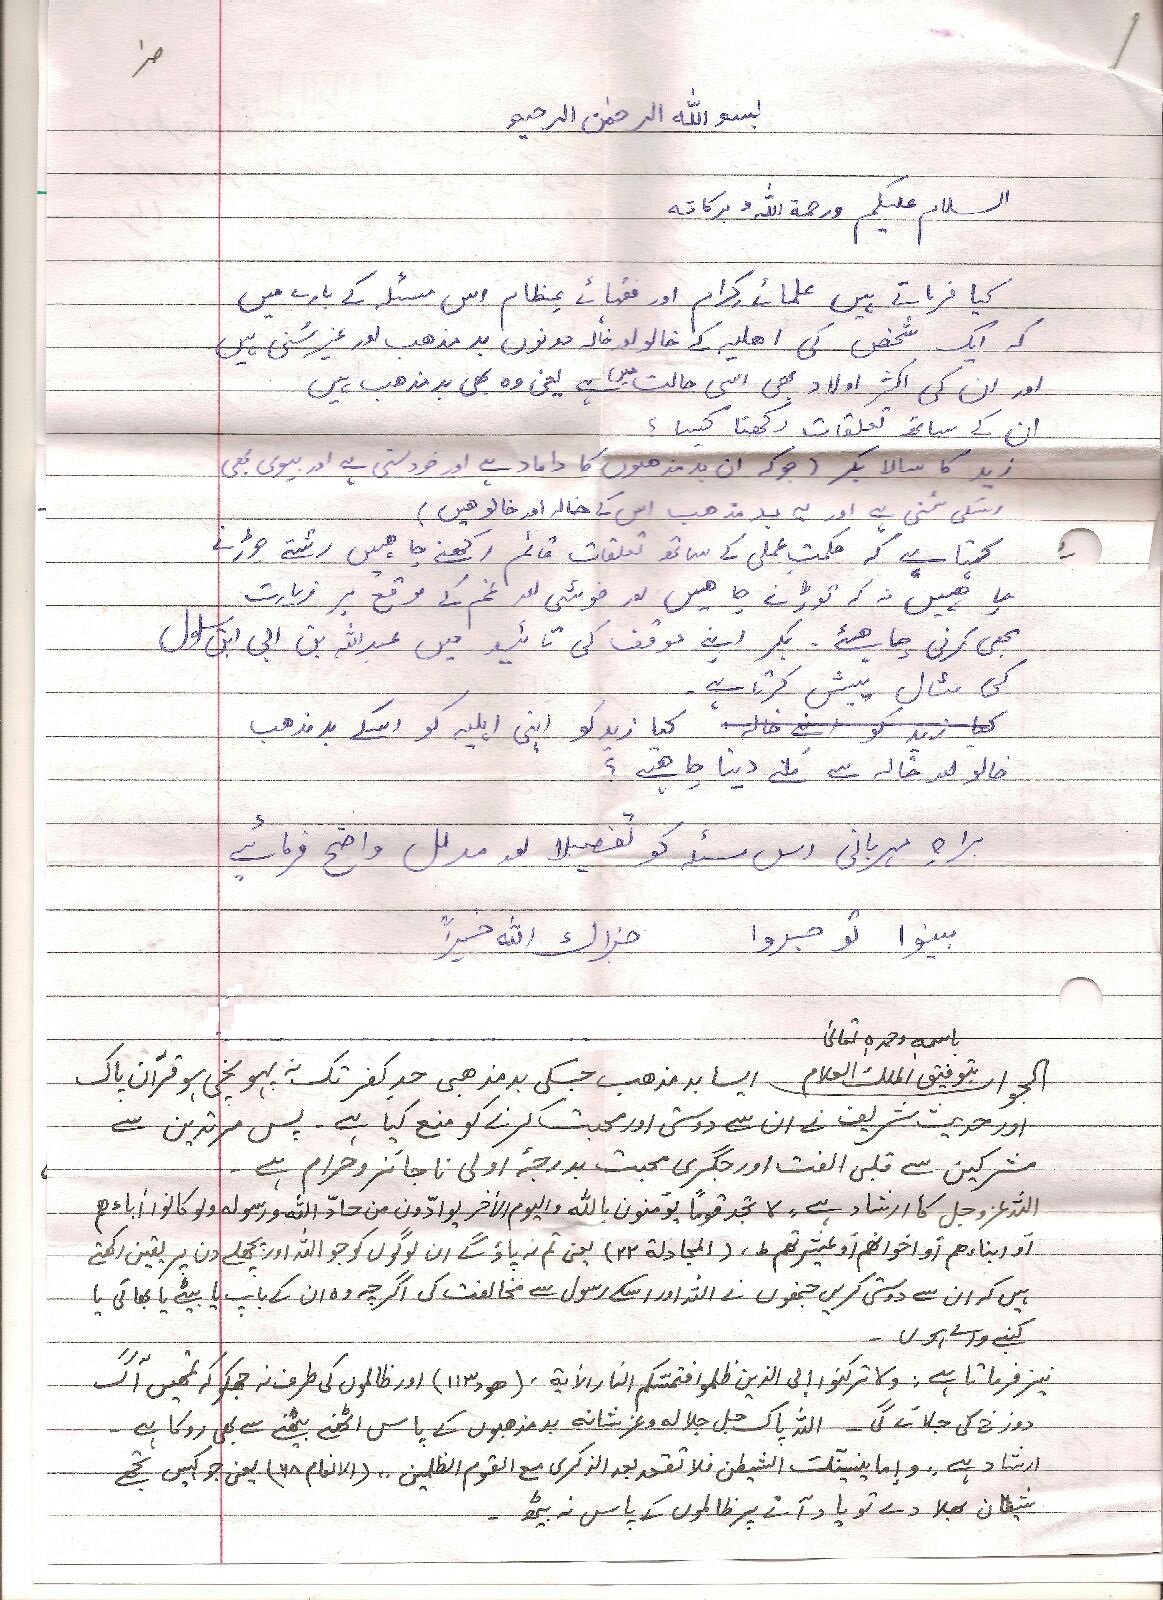 ص۱
بسم اللہ الرحمٰن الرحیم
السلام علیکم ورحمۃ اللہ و برکاتہ
کیا فرماتے ہیں علمائے کرام اور فقہائے عظام اس مسئلہ کے بارے میں
کہ ایک شخص کی اھلیہ کے خالو اور خالہ دونوں بد مذھب اور غیر سُنی ہیں
اور ان کی اکثر اولاد بھی اسی حالت میں ہے یعنی وہ بھی بد مذھب ہیں
ان کے ساتھ تعلقات رکھنا کیسا ؟
زید کا سالا بکر (جو کہ ان بد مذھبوں کا داماد ہے اور خود سنی ہے اور بیوی بھی
اسکی سُنی ہے اور یہ بد مذھب اس کے خالہ اور خالو ھیں)
کہتا ہے کہ حکمتِ عملی کے ساتھ تعلقات قائم رکھنے چاہیں رشتے جوڑنے
چا ھیں نہ کہ توڑنے چا ھیں اور خوشی اور غم کے موقع پر زیارت
بھی کرنی چاہیئے . بکر اپنے موقف کی تائید میں عبداللہ بن ابی ابن سلول
کی مثال پیش کرتا ہے۔
کیا زید کو اپنے خالہ کیا زید کو اپنی اہلیہ کو اسکے بد مذھب
خالو اور خالہ سے ملنے دینا چاہئے ؟
براہِ مہربانی اس مسئلہ کو تفصیلا اور مدلل واضح فرمائیے
بینوا تو جروا جزاك اللہ خیراً
باسمہ وحدہ تعالیٰ
الجواب بتوفیق الملك العلام ایسا بد مذھب جسکی بد مذھبی حد کفر تک نہ پہونچی ہو قرآن پاک
اور حدیث شریف نے ان سے دوستی اور محبت کرنے کو منع کیا ہے۔ پس مرتدین سے
مشرکین سے قلبی الفت اور جگری محبت بدرجۂ اولی ناجائز و حرام ہے ۔
اللہ عزوجل کا ارشاد ہے ,, لا تجد قومًا یؤمنون باللہ والیوم الآخر یوادّون من حادّ اللہ ورسولہ ولو کانوا آباءھم
أو ابناءھم أو اخوانھم أو عشیرتھم ط ,, (المجادلة ۲۲) یعنی تم نہ پاؤگے ان لوگوں کو جو اللہ اور پچھلے دن پر یقین رکھتے
ہیں کہ ان سے دوستی کریں جنھوں نے اللہ اور اسکے رسول سے مخالفت کی اگرچہ وہ ان کے باپ یا بیٹے یا بھائی یا
کنبے والے ہوں ۔
نیز فرماتا ہے : ولا ترکنوا إلی الذین ظلموا فتمسّکم النار الأیة ، (ھود ۱۱۳) اور ظالموں کی طرف نہ جھکو کہ تمھیں آگ
دوزخ کی جلائے گی ۔ اللہ پاک جل جلالہ وعز شانہ بد مذھبوں کے پاس اٹھنے بیٹھنے سے بھی روکا ہے ۔
ارشاد ہے ,, وإما ینسینّك الشیطن فلا تقعد بعد الذکری مع القوم الظلمین ,, (الانعام ۶۸) یعنی جو کہیں تجھے
شیطان بھلا دے تو یاد آتے پر ظالموں کے پاس نہ بیٹھ ۔